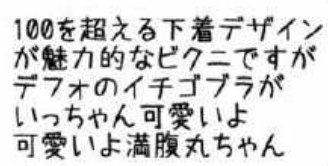 100を超える下着デザイン
が魅力的なビクニですが
デフォのイチゴブラが
いっちゃん可愛いよ
可愛いよ満腹丸ちゃん